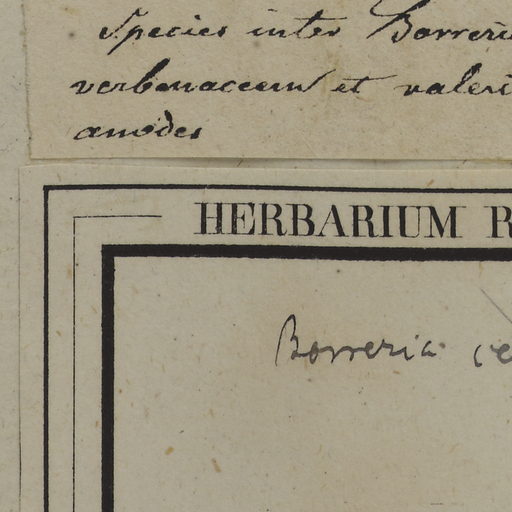 Species inter Borreri
verbenaceum et valeri
anodes
HERBARIUM R
Borreria ce